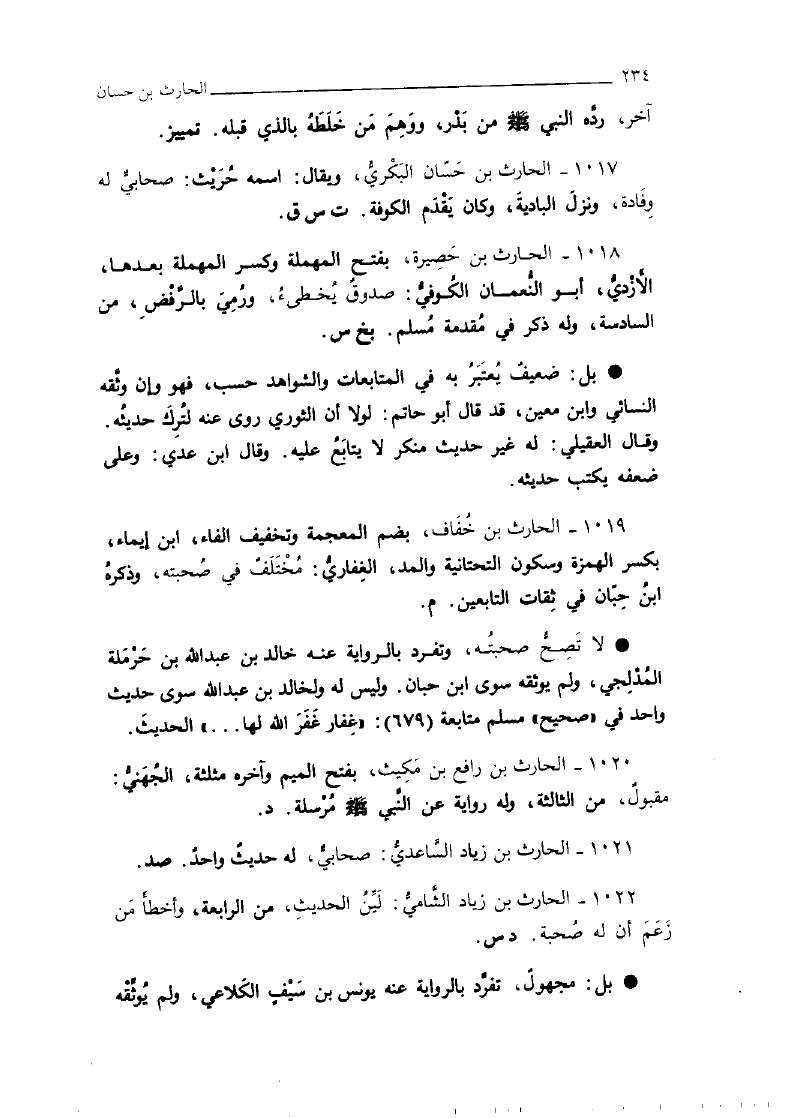 ٢٣٤ الحارث بن حسان
آخر، ردَّه النبي ﷺ من بَدْر، ووَهِمَ مَن خَلَطَهُ بالذي قبله. تمييز.
١٠١٧ - الحارث بن حَسّان البَكْريُّ، ويقال: اسمه حُرَيْث: صحابيٌّ له
وِفَادة، ونزلَ الباديةَ، وكان يَقْدَم الكوفة. ت س ق.
١٠١٨ - الحارث بن حَصِيرة، بفتح المهملة وكسر المهملة بعدها،
الأَزْديُّ، أبو النُّعمان الكُوفيُّ: صدوقٌ يُخطىءُ، ورُمِيَ بالرَّفْضِ، من
السادسة، وله ذكر في مُقدمة مُسلم. بخ س.
● بل: ضعيفٌ يُعتَبَرُ به في المتابعات والشواهد حسب، فهو وإن وثَّقه
النسائي وابن معين، قد قال أبو حاتم: لولا أن الثوري روى عنه لتُرِكَ حديثُه.
وقال العقيلي: له غير حديث منكر لا يتابَعُ عليه. وقال ابن عدي: وعلى
ضعفه يكتب حديثه.
١٠١٩ - الحارث بن خُفَاف، بضم المعجمة وتخفيف الفاء، ابن إيماء،
بكسر الهمزة وسكون التحتانية والمد، الغِفاريُّ: مُخْتَلَفٌ في صُحبته، وذكرهُ
ابنُ حِبّان في ثِقات التابعين. م.
● لا تَصِحُّ صحبتُه، وتفرد بالرواية عنه خالد بن عبدالله بن حَرْمَلة
المُدْلِجي، ولم يوثقه سوى ابن حبان. وليس له ولخالد بن عبدالله سوى حديث
واحد في «صحيح» مسلم متابعة (٦٧٩): «غِفار غَفَرَ الله لها...» الحديثَ.
١٠٢٠ - الحارث بن رافع بن مَكِيث، بفتح الميم وآخره مثلثة، الجُهَنيُّ:
مقبولٌ، من الثالثة، وله رواية عن النَّبي ﷺ مُرْسلة. د.
١٠٢١ - الحارث بن زياد السَّاعديُّ: صحابيٌّ، له حديثٌ واحدٌ. صد.
١٠٢٢ - الحارث بن زياد الشَّاميُّ: لَيِّنُ الحديثِ، من الرابعة، وأخطأَ مَن
زَعَمَ أن له صُحبة. د س.
● بل: مجهولٌ، تفرَّد بالرواية عنه يونس بن سَيْفٍ الكَلاعي، ولم يُوثِّقْه